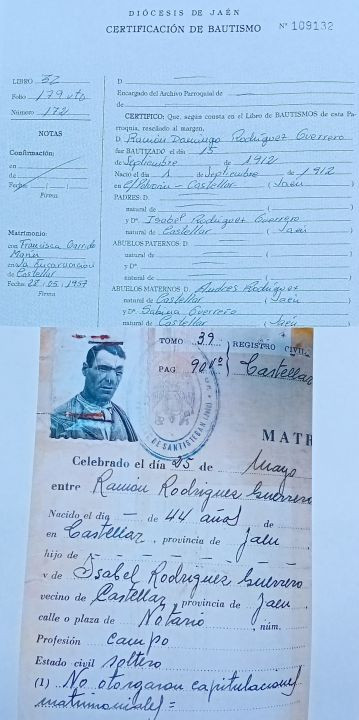 DIÓCESIS DE JAÉN
CERTIFICACIÓN DE BAUTISMO Nº 109132
LIBRO 32
Folio 179 vto
Número 172
NOTAS
Confirmación:
en
de
Fecha:
Firma
Matrimonio:
con Francisca Garrido
Marín
en La Encarnación
de Castellar
Fecha: 28.05.1957
Firma
D
Encargado del Archivo Parroquial de
de
CERTIFICO: Que, según consta en el Libro de BAUTISMOS de esta Pa-
rroquia, reseñado al margen,
D. Ramón Domingo Rodríguez Guerrero
fue BAUTIZADO el día 15
de Septiembre de 1912
Nació el día 1 de Septiembre de 1912
en Castellar (Jaén
PADRES: D.
natural de (
y Dª. Isabel Rodríguez Guerrero
natural de Castellar (Jaén
ABUELOS PATERNOS: D.
natural de (
y Dª.
natural de (
ABUELOS MATERNOS: D. Andrés Rodríguez
natural de Castellar (Jaén
y Dª. Sabina Guerrero
natural de Castellar (Jaén
TOMO 39 REGISTRO CIVIL
PAG 90 vº Castellar
DE SANTISTEBAN
MATR
Celebrado el día 25 de Mayo
entre Ramón Rodriguez Guerrero
Nacido el día — de 44 años de
en Castellar, provincia de Jaen
hijo de
y de Isabel Rodriguez Guerrero
vecino de Castellar provincia de Jaen
calle o plaza de Notario núm.
Profesión campo
Estado civil soltero
(1) No otorgaron capitulaciones
matrimoniales =